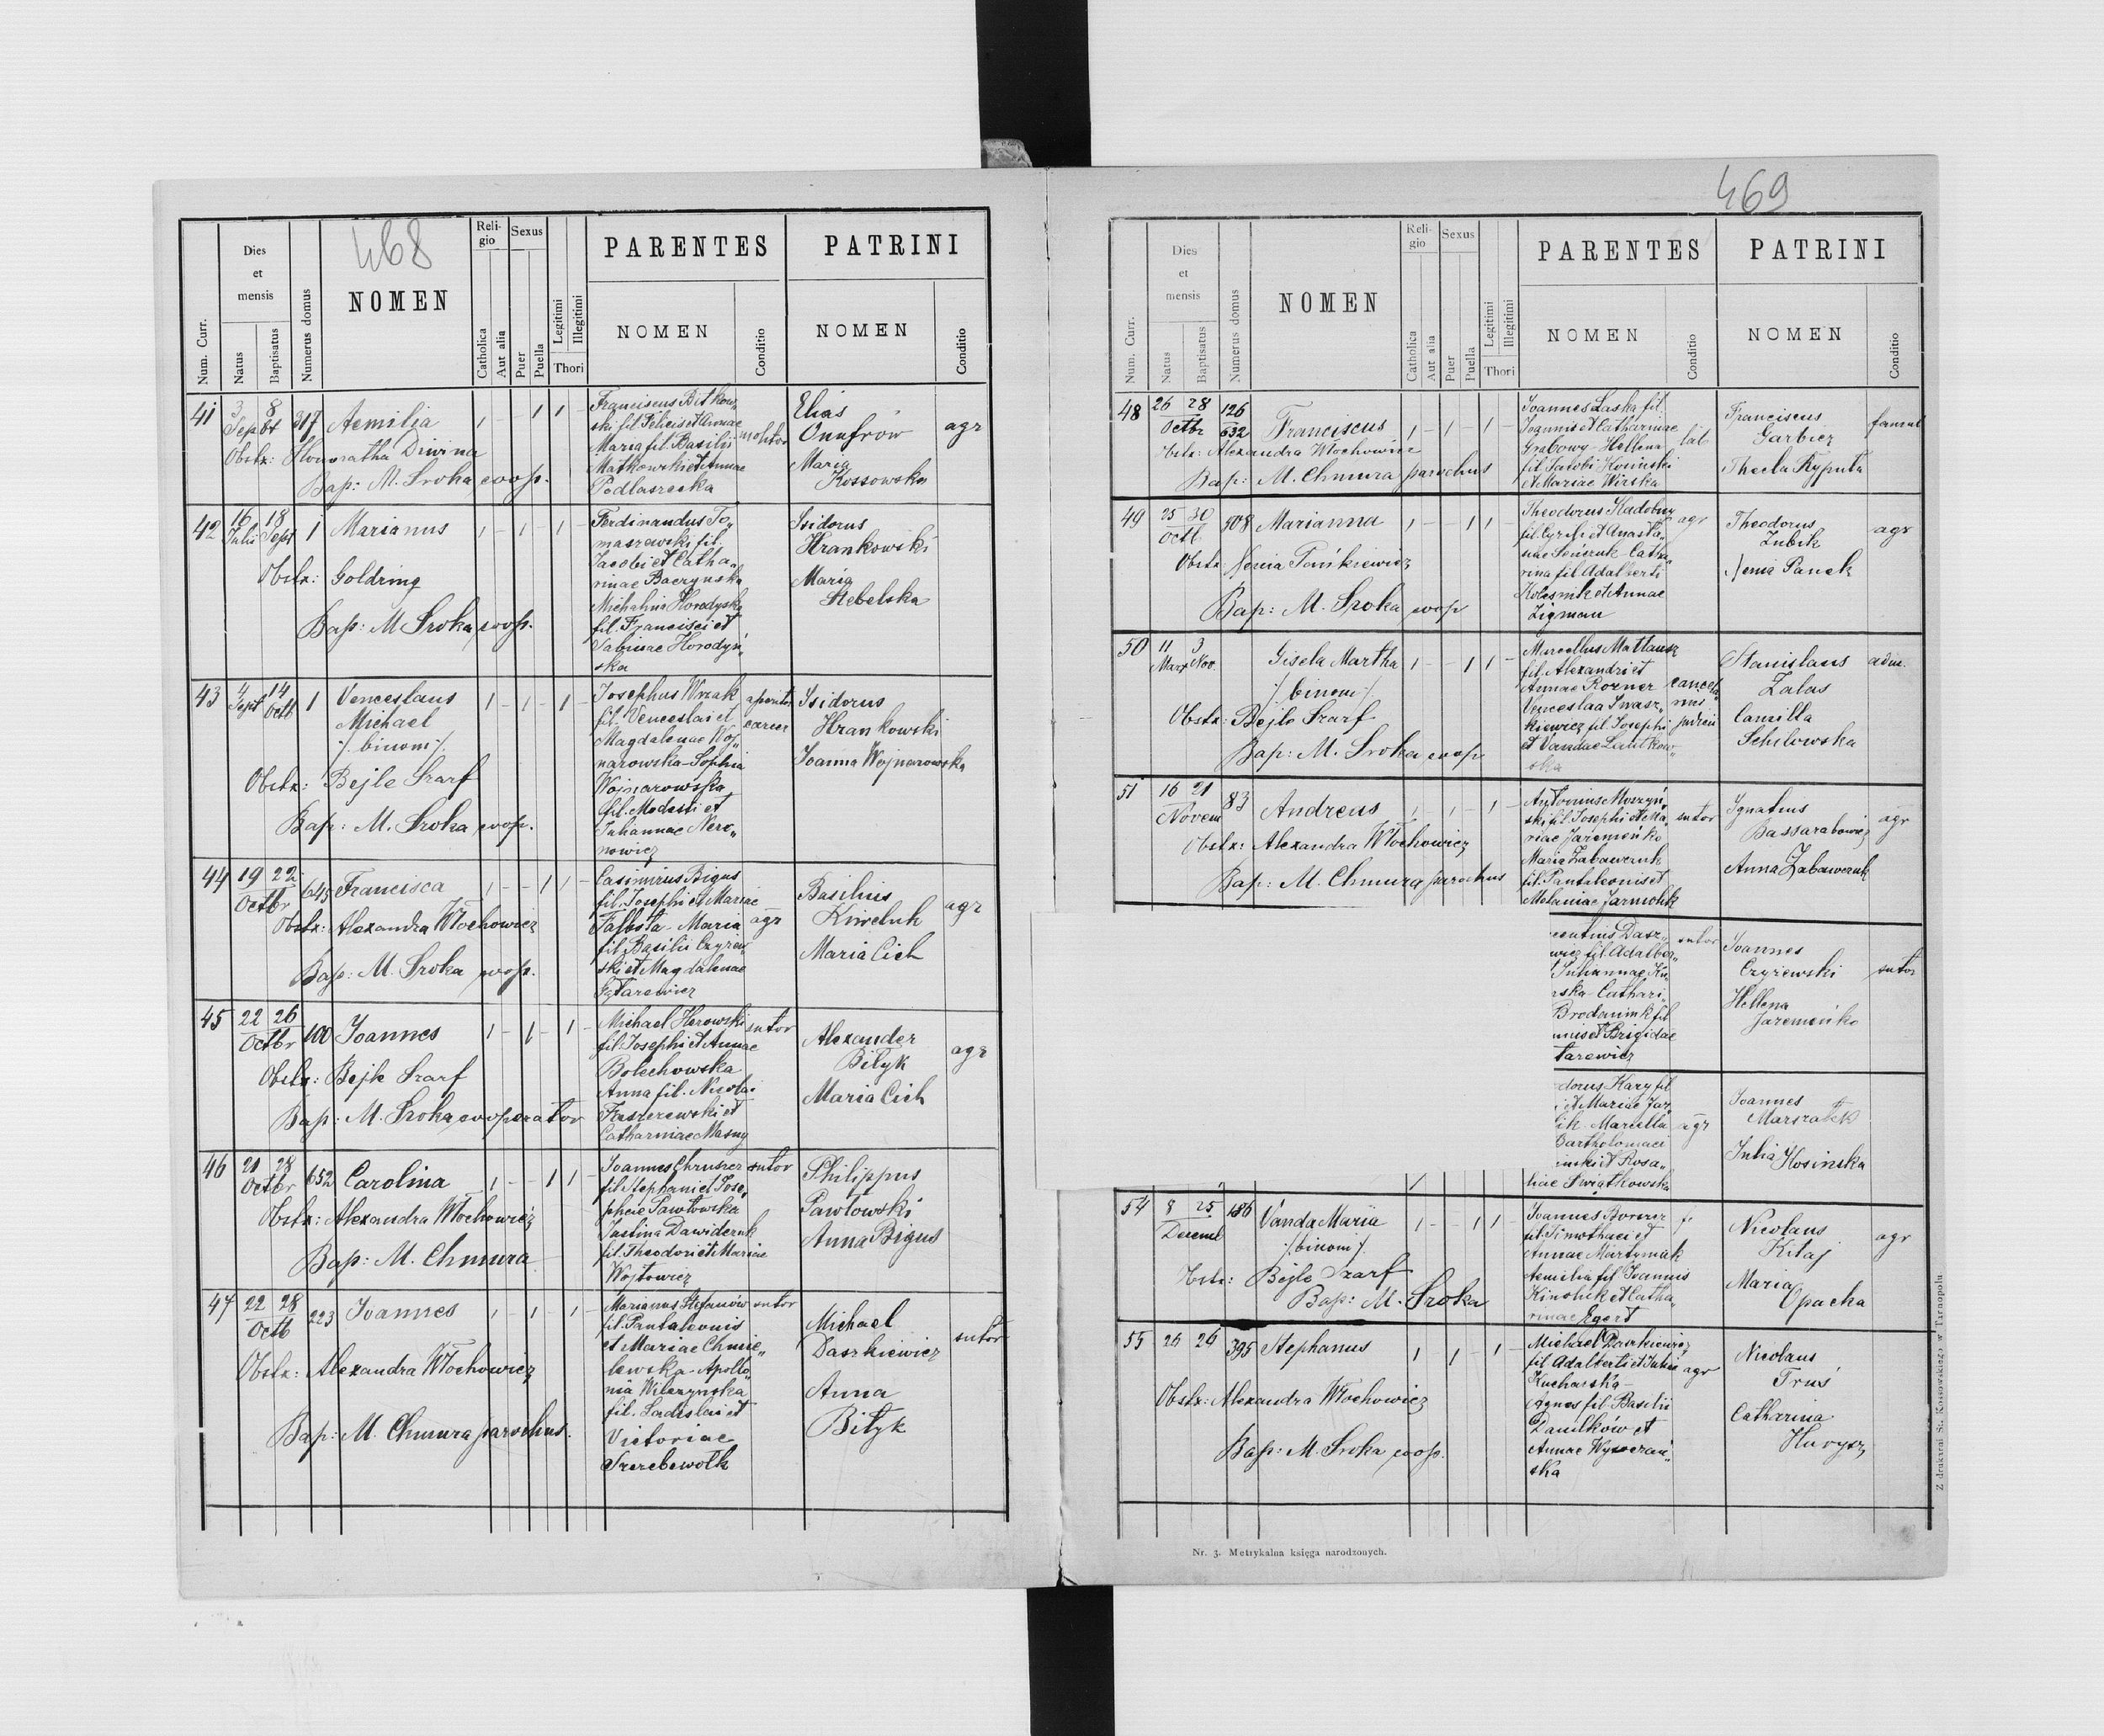 468
Num. Curr.
Dies et mensis
Natus
Baptisatus
Numerus domus
NOMEN
Religio
Catholica
Aut alia
Sexus
Puer
Puella
Legitimi
Illegitimi
Thori
PARENTES
NOMEN
Conditio
PATRINI
NOMEN
Conditio
41
3 8
Sept
317
Aemilia
Obstx: Honoratha Diwina
Bap: M. Sroka coop.
Franciscus Bitkow„
ski fil. Felicis et Annae
Maria fil. Basilii
Matkowski et Annae
Podlaszecka
Elias
Onufrow
Maria
Kossowska
agr
42
16 18
Julii Sept
1
Marianus
Obstx: Goldring
Bap: M Sroka coop.
Ferdinandus To„
maszewski fil.
Jacobi et Catha„
rinae Baczynska
Michalina Horodyska
fil. Francisci et
Sabinae Horodyń„
ska
Isidorus
Hrankowski
Maria
Stebelska
43
4 14
Sept Octb
1
Venceslaus
Michael
·/. binom ·/.
Obstx: Bejle Szarf
Bap: M. Sroka coop.
Josephus Wrzak
fil. Venceslai et
Magdalenae Woj„
narowska - Sophia
Wojnarowska
fil. Modesti et
Juliannae Nero„
nowicz
Isidorus
Hrankowski
Joanna Wojnarowska
44
19 22
Octbr
645
Francisca
Obstx: Alexandra Włochowicz
Bap: M. Sroka coop.
Casimirus Bigus
fil. Josephi et Mariae
Maria
fil. Basilii Czyżew„
ski et Magdalenae
agr
Basilius
Kiweluk
Maria Cich
agr
45
22 26
Octbr
100
Joannes
Obstx: Bejle Szarf
Bap: M. Sroka cooperator
Michael Herowski
fil. Josephi et Annae
Bolechowska
Anna fil. Nicolai
et
Catharinae Masny
sutor
Alexander
Bilyk
Maria Cich
agr
46
21 28
Octbr
652
Carolina
Obstx: Alexandra Włochowicz
Bap: M. Chmura
Joannes Chruszcz
fil. Stephani et Jose„
phae Pawłowska
Justina Dawidczuk
fil. Theodori et Mariae
Wojtowicz
sutor
Philippus
Pawłowski
Anna Bigus
47
22 28
Octb
223
Joannes
Obstx: Alexandra Włochowicz
Bap: M. Chmura parochus.
Marianus Stefanów
fil. Pantaleonis
et Mariae Chmie„
lewska - Apollo„
nia Wilczynska
fil. Ladislai et
Victoriae
Szerebewołk
sutor
Michael
Daszkiewicz
Anna
Bityk
sutor
469
Num. Curr.
Dies et mensis
Natus
Baptisatus
Numerus domus
NOMEN
Religio
Catholica
Aut alia
Sexus
Puer
Puella
Legitimi
Illegitimi
Thori
PARENTES
NOMEN
Conditio
PATRINI
NOMEN
Conditio
48
26 28
Octbr
126
632
Franciscus
Obstx: Alexandra Włochowicz
Bap: M. Chmura parochus
Joannes Laska fil.
Joannis et Catharinae
Grabowy - Hellena
fil. Jacobi Kosinski
et Mariae Wirska
Franciscus
Garbicz
Thecla Kyputa
famul
49
25 30
Octb
508
Marianna
Obstx Xenia Pańkiewicz
Bap: M. Sroka coop
Theodorus Kadobny
fil. Cyrili et Anasta„
Catha„
rina fil. Adalberti
Kolesnik et Annae
Zigman
agr
Theodorus
Zubik
Xenia Panek
agr
50
11 3
Nov.
Gisela Martha
·/. binom ·/.
Obstx: Bejle Szarf
Bap: M. Sroka coop
Marcellus Mattausz
fil. Alexandri et
Annae Rozner
Venceslaa Iwasz„
kiewicz fil. Josephi
et Vandae
ska
Stanislaus
Zalas
Camilla
Schilowska
51
16 21
Novem
83
Andreas
Obstx: Alexandra Włochowicz
Bap: M. Chmura parochus
Antonius Moszyń„
ski fil. Josephi et Ma„
riae Jaremeńko
Maria Zabawczuk
fil. Pantaleonis et
Melaniae Jarmoluk
sutor
Ignatius
Bassarabowicz
Anna Zabawczuk
agr
centius Dasz„
wicz fil. Adalber„
Juliannae Ku„
rska - Cathari„
Brodaninek fil
nnis et Brigidae
tarewicz
sutor
Joannes
Czyżewski
Hellena
Jaremeńko
sutor
dorus Kary fil
et Mariae Jar„
Marcella
Bartholomaei
inski et Rosa„
liae Swiątkowska
agr
Joannes
Marszałek
Julia Kosinska
54
8 25
Decemb
186
Vanda Maria
·/. binom ·/.
Obstx: Bejle Szarf
Bap: M. Sroka
Joannes
fil. Timothaei et
Annae Martyniak
Aemilia fil Joannis
Kinoluk et Catha„
rinae Egert
Nicolaus
Kitaj
Maria
Opacka
agr
55
26 26
395
Stephanus
Obstx: Alexandra Włochowicz
Bap: M. Sroka coop.
Michael Daszkiewicz
fil. Adalberti et Juliae
Kucharska -
Agnes fil. Basilii
Danilków et
Annae Wysoczań„
ska
agr
Nicolaus
Truś
Catharina
Hurysz
Nr. 3. Metrykalna księga narodzonych.
Z drukarni St. Kossowskiego w Tarnopolu